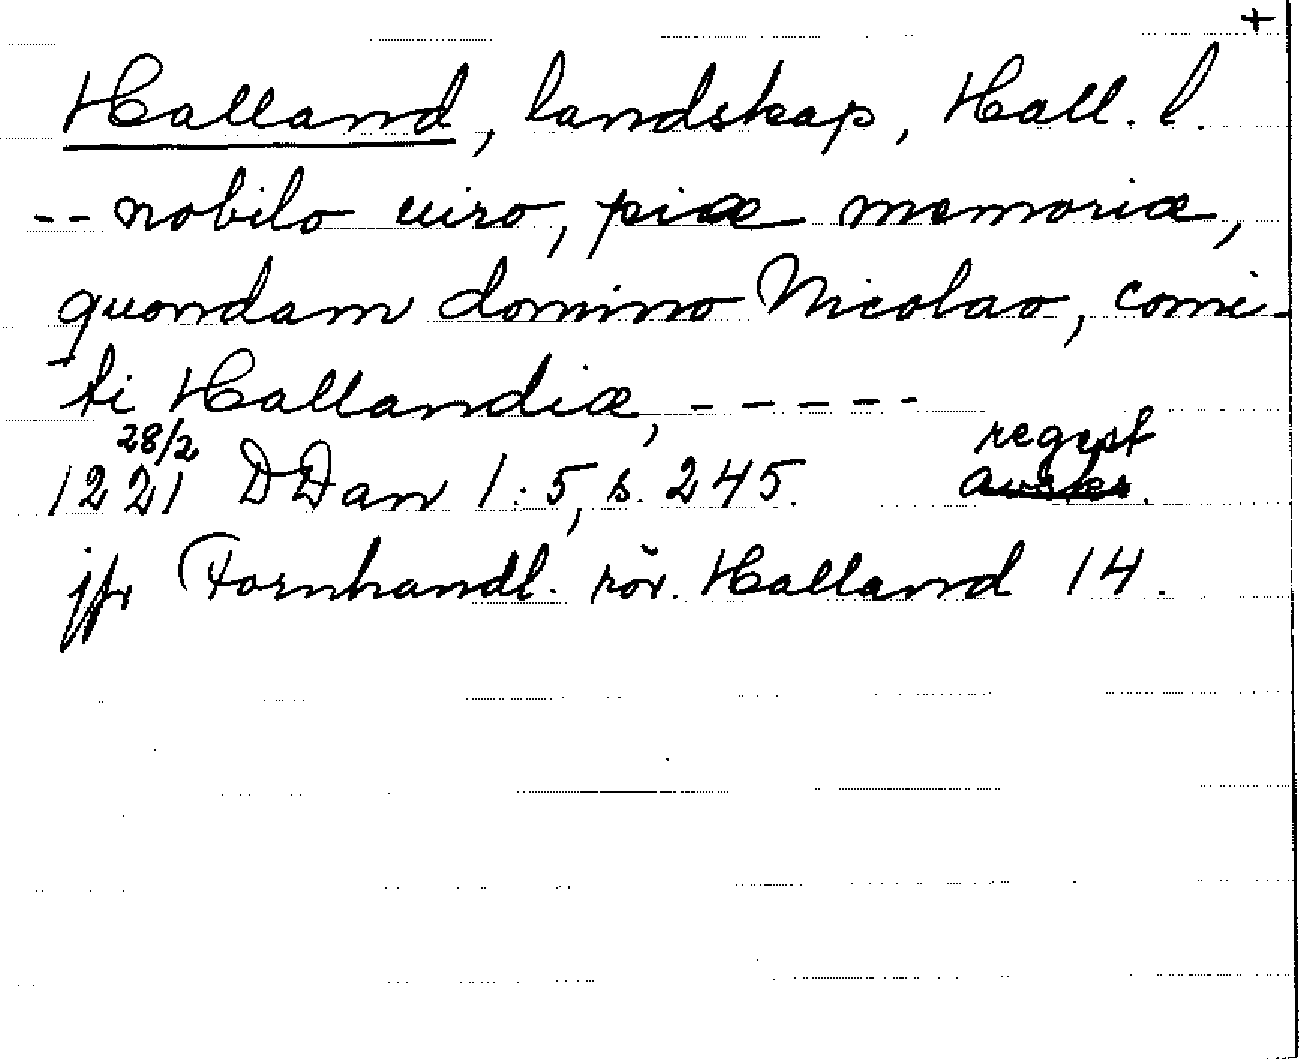 +
Halland, landskap, Hall. l.
-- nobilo uiro, piæ memoriæ,
quondam domino Nicolao, comi-
ti Hallandiæ, -----
28/2 regest
1221 DDan 1:5, s. 245. avskr.
jfr Fornhandl. rör. Halland 14.